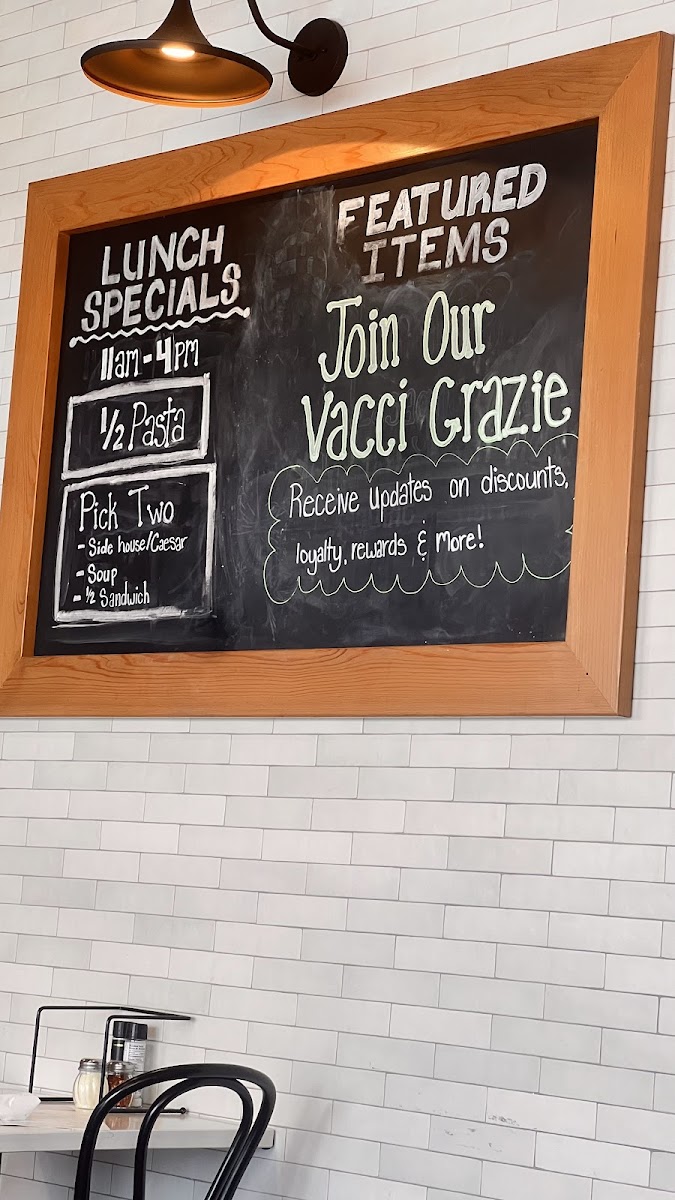 LUNCH
SPECIALS
11am-4pm
1/2 Pasta
Pick Two
- Side house/Caesar
- Soup
- 1/2 Sandwich
FEATURED
ITEMS
Join Our
Vacci Grazie
Receive updates on discounts,
loyalty, rewards & more!